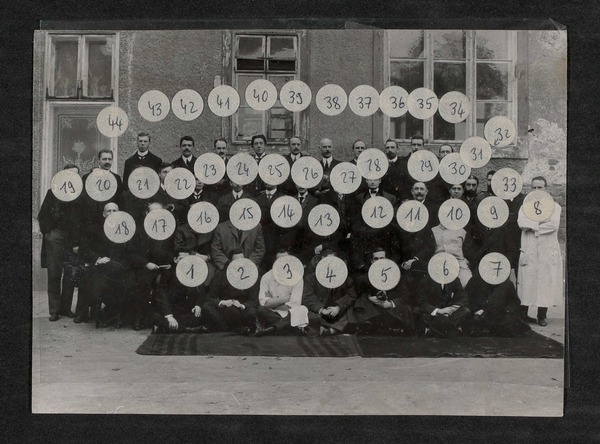 44 43 42 41 40 39 38 37 36 35 34 32
31
19 20 21 22 23 24 25 26 27 28 29 30 33
18 17 16 15 14 13 12 11 10 9 8
1 2 3 4 5 6 7